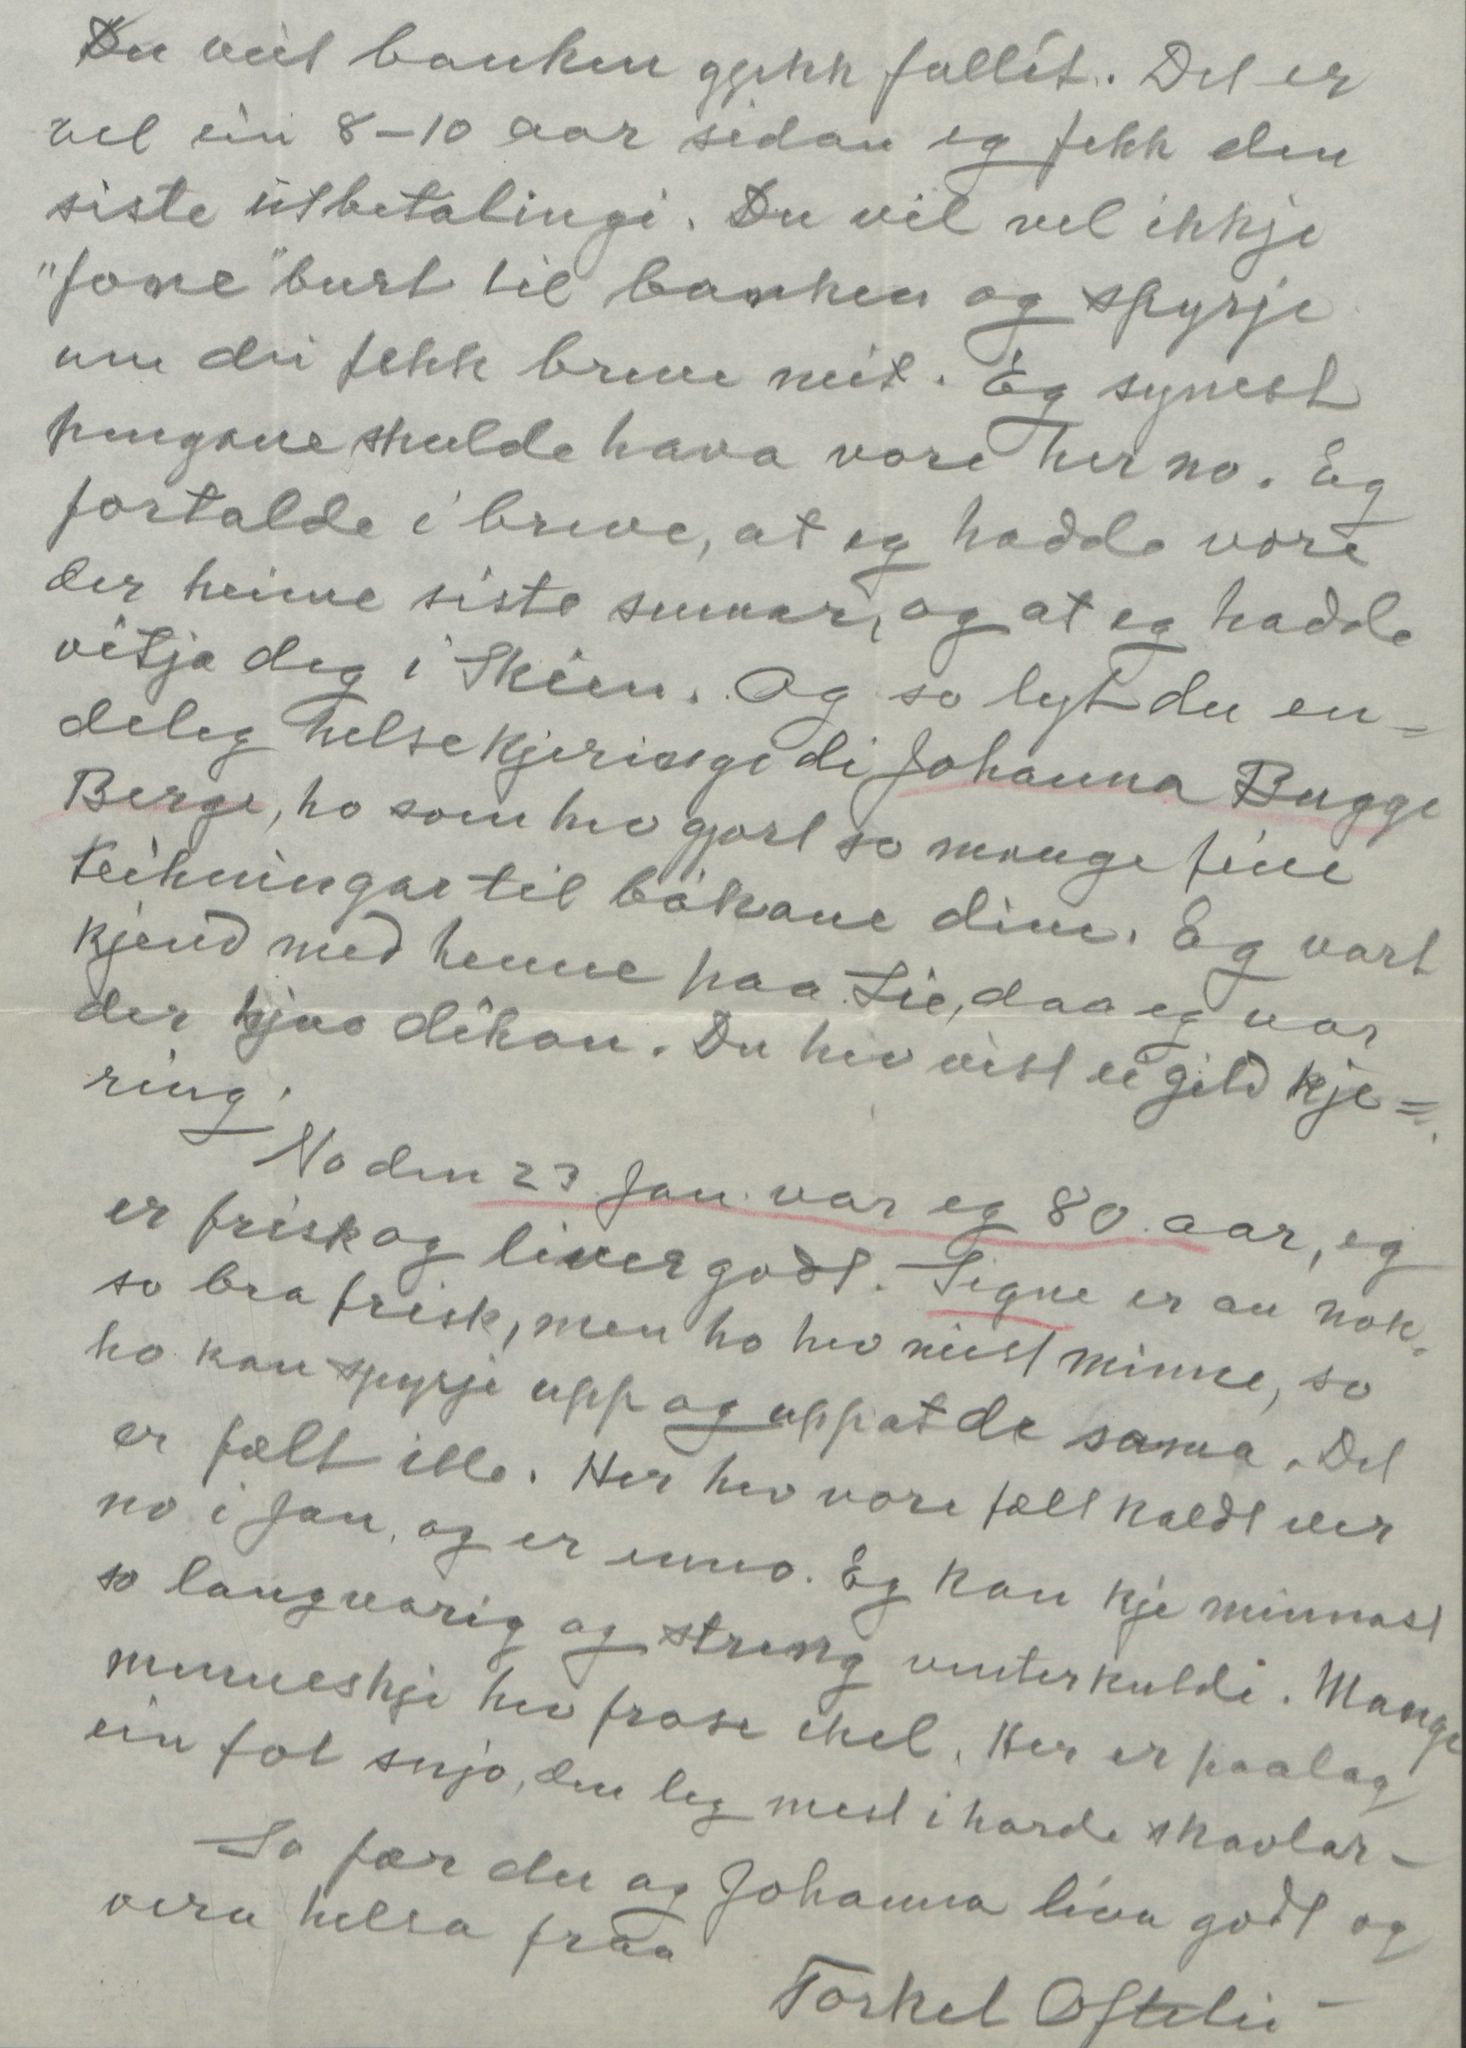 Du veit banken gjekk fallit. Det er
vel ein 8-10 aar sidan eg fekk den
siste utbetalingi. Du vil vel ikkje
"fone" burt til banken og spyrje
um dei fekk breve mit. Eg synest
pengane skulde hava vore her no. Eg
fortalde i breve, at eg hadde vore
der heime siste sumar, og at eg hadde
vitja deg i Skien. Og so lyt du en=
deleg helse kjeringe di Johanna Bugge
Berge, ho som hev gjort so mange fine
teikningar til bøkane dine. Eg vart
kjend med henne paa Lie, daa eg var
der hjaa dikan. Du hev vist ei gild kje=
ring.
No den 23 Jan. var eg 80 aar, eg
er frisk og liver godt. Signe er au nok-
so bra frisk, men ho hev mist minne, so
ho kan spyrje upp og upp at de sama. Det
er fælt ille. Her hev vore fælt kaldt ver
no i Jan. og er enno. Eg kan kje minnast
so langvarig og streng vinterkuldi. Mange
menneskje hev frose ihel. Her er paalag
ein fot snjo, den leg mest i harde skavlar –
So fær du og Johanna liva godt og
vera helsa fraa
Torkel Oftelie –